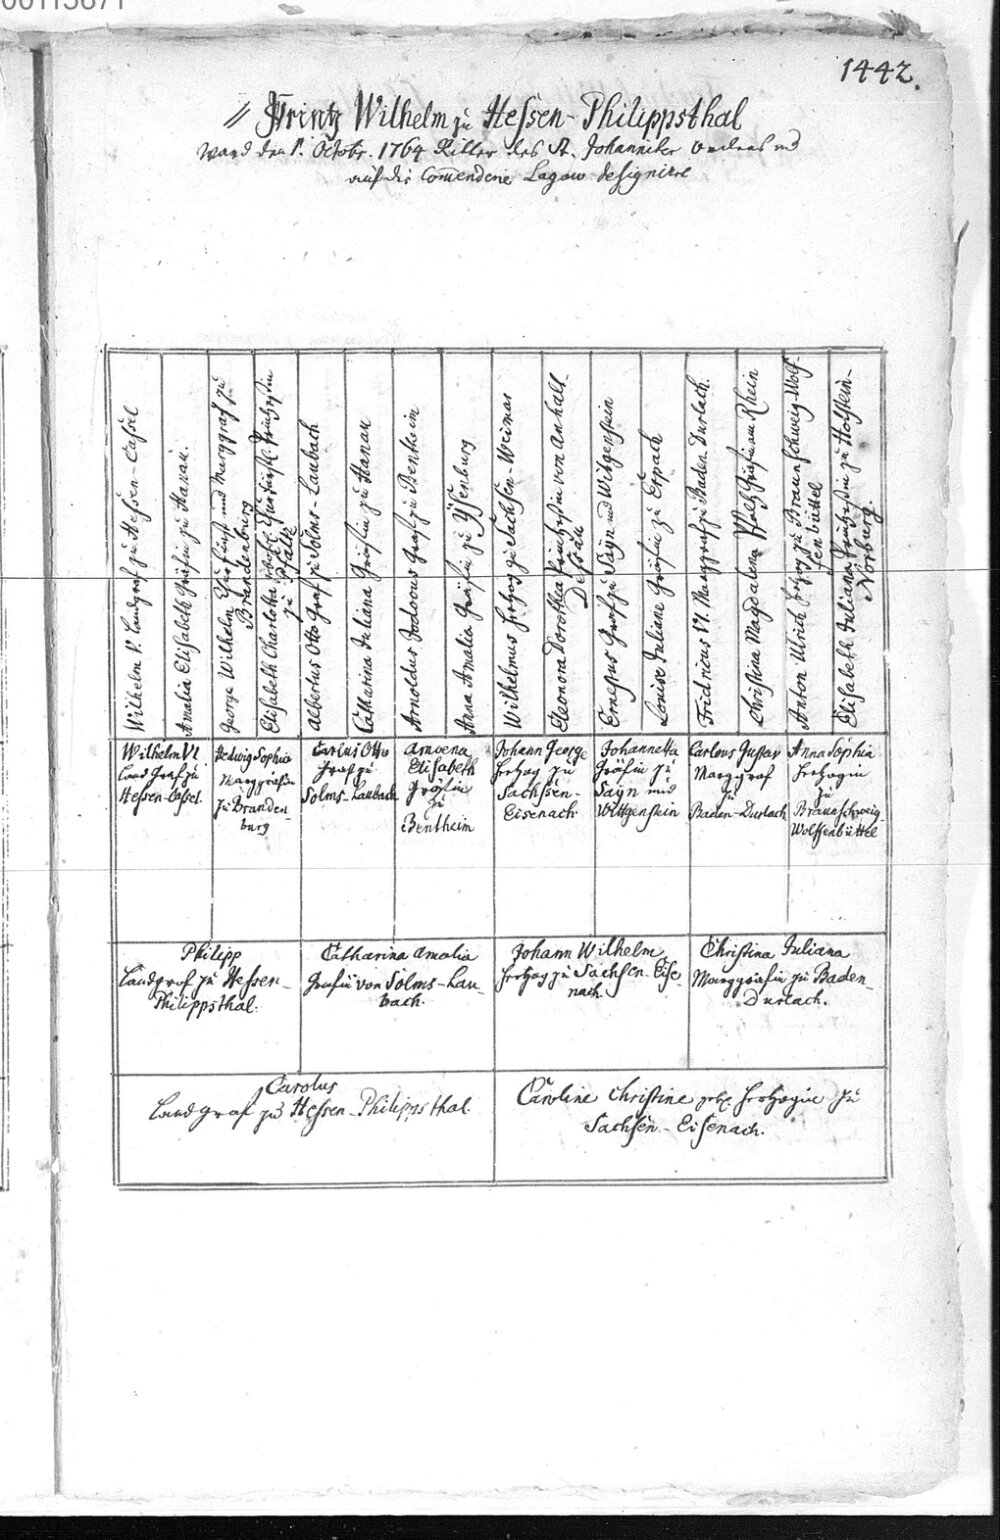 00115671
1442.
Printz Wilhelm zu Hessen-Philippsthal
ward den Octobr. 1764 Ritter des St. Johanniter Ordens und
auf die Comendene Lagow designiret
Wilhelm V. Landgraf zu Hessen-Cassel
Amalia Elisabeth Gräfin zu Hanau.
George Wilhelm Churfürst und Marggraf zu
Brandenburg
Elisabeth Charlotta Printzeßin
zu Pfaltz
Albertus Otto Graf zu Solms-Laubach
Catharina Juliana Gräfin zu Hanau
Arnoldus Jodocus Graf zu Bentheim
Anna Amalia Gräfin zu Ysenburg
Wilhelmus Hertzog zu Sachsen-Weimar
Eleonora Dorothea Printzeßin von Anhalt-
Dessau
Ernestus Graf zu Sayn und Witgenstein
Louise Juliane Gräfin zu Erpach
Fridricus VI. Marggraf zu Baden Durlach.
Christina Magdalena Pfaltz Gräfin am Rhein
Anton Ulrich Hertzog zu Braunschweig-Wolf-
fenbüttel
Elisabeth Juliana Printzeßin zu Holstein-
Norburg.
Wilhelm VI
Land Graf zu
Hessen-Cassel.
Hedwig Sophia
Marggräfin
zu Branden
burg
Carlus Otto
Graf zu
Solms-Laubach
Amoena
Elisabeth
Gräfin
zu
Bentheim
Johann George
Hertzog zu
Sachsen-
Eisenach
Johannetta
Gräfin zu
Sayn und
Wittgenstein
Carlous Gustav
Marggraf
zu
Baden-Durlach
Anna Sophia
Hertzogin
zu
Braunschweig-
Wolffenbüttel
Philipp
Landgraf zu Hessen-
Philippsthal.
Catharina Amalia
Gräfin von Solms-Lau-
bach.
Johann Wilhelm
Hertzog zu Sachsen-Eise
nach.
Christina Juliana
Marggräfin zu Baden-
Durlach.
Carolus
Landgraf zu Hessen-Philippsthal.
Caroline Christine geb. Hertzogin zu
Sachsen-Eisenach.